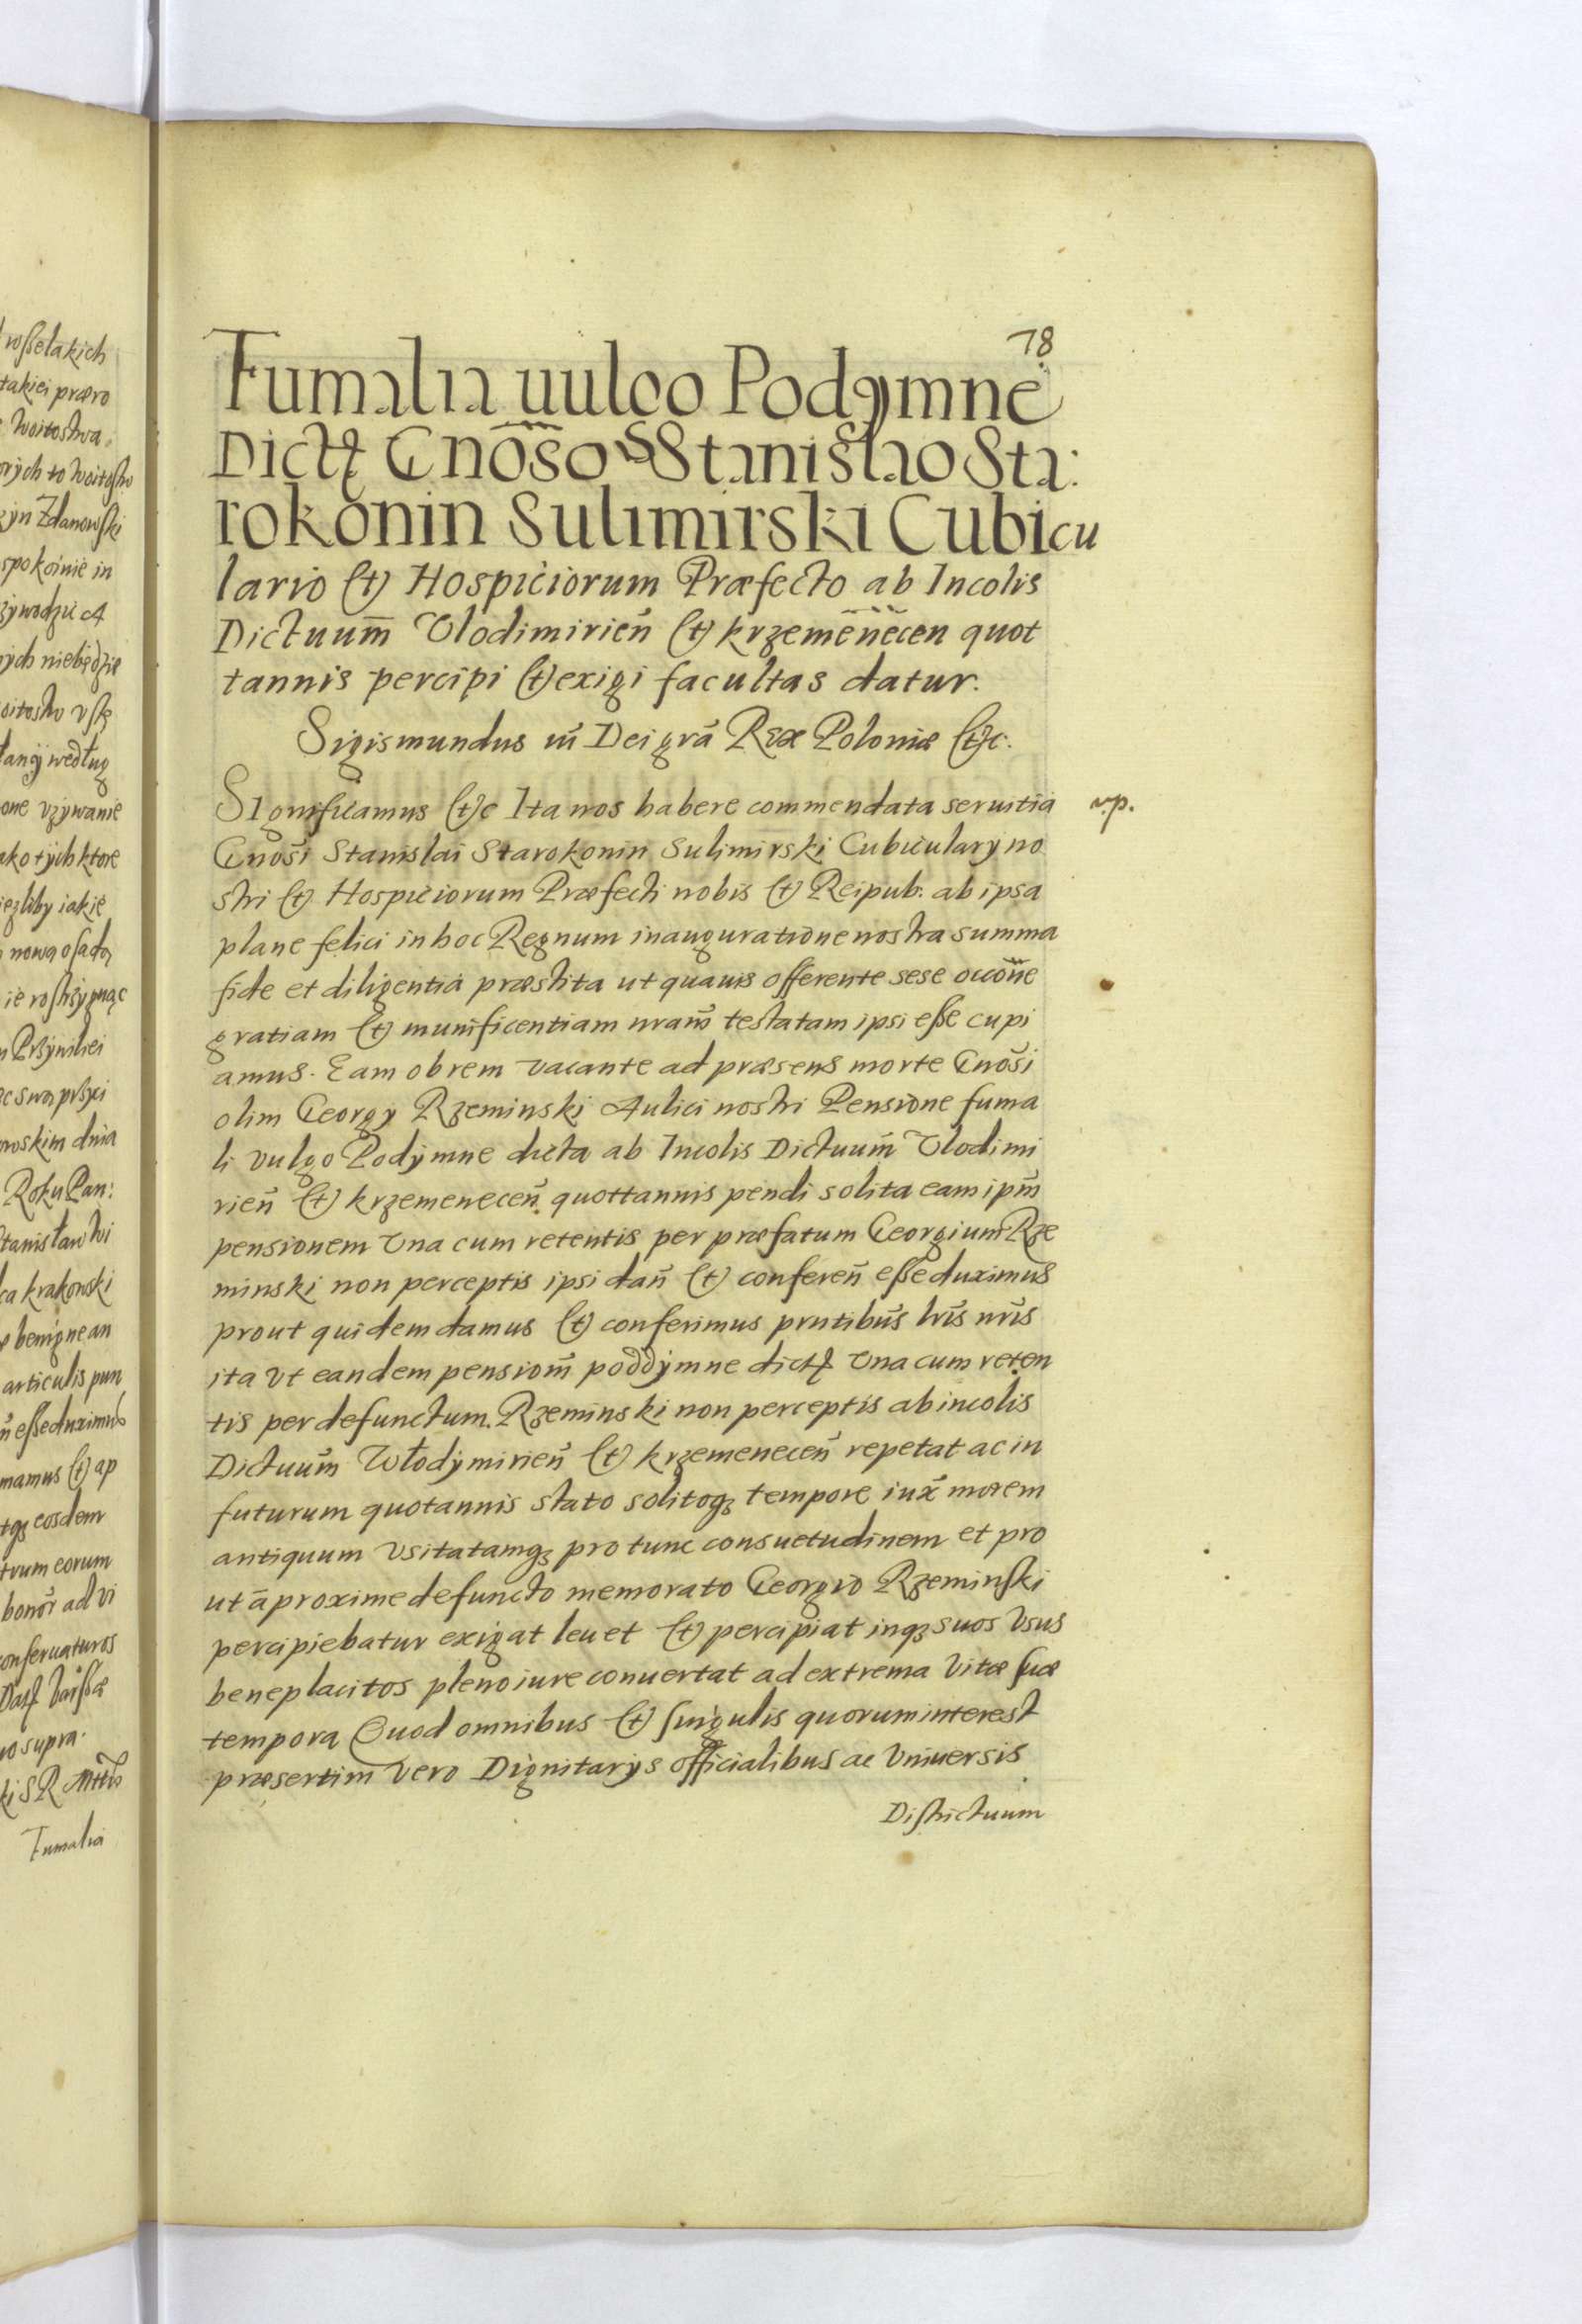 wßelakich
takiei præro
woitostwa
orych to woitostw
Zdanowski
spokoinie in
ych niebędzie
oitostw
według
one vżywanie
ako tych ktore
iezliby iakie
nową osadą
Przywilei
oroskim dnia
Roku Pan:
ca krakowski
benigne an
articulis pun
eße duximus
mamus (et) ap
tqz eosdem
trum eorum
bonor ad vi
onseruaturos
uo supra.
Fumalia
78
Fumalia uulgo Podymne
Dictę Gnoso Stanislao Sta:
rokonin Sulimirski Cubicu
lario (et) Hospiciorum Præfecto ab Incolis
Dictuum̃ Vlodimirień (et) krzemenecen quot
tannis percipi (et) exigi facultas datur.
Sigismundus iii Dei grã Rex Poloniæ (et)c.
Significamus (et)c Ita nos habere commendata seruitia
v.p.
Gnosi Stanislai Starokonin Sulimirski Cubicularÿ no
stri (et) Hospiciorum Præfecti nobis (et) Reipub: ab ipsa
plane felici in hoc Regnum inauguratione nostra summa
fide et diligentia præstita ut quauis offerente sese occoñe
gratiam (et) munificentiam nram̃ testatam ipsi eße cupi
amus. Eam ob rem vacante ad præsens morte Gnosi
olim Georgÿ Rzeminski Aulici nostri Pensione fuma
li vulgo Podÿmne dicta ab Incolis Dictuum̃ Vlodimi
rień (et) krzemeneceń quottannis pendi solita eam ipm̃
pensionem Vna cum retentis per præfatum Georgium Rze
minski non perceptis ipsi dań (et) confereń eße duximus
prout quidem damus (et) conferimus pntibus̃ lris̃ nris̃
ita vt eandem pensiom̃ poddÿmne dictę Vna cum reten
tis per defunctum Rzeminski non perceptis ab incolis
Dictuum̃ Włodÿmirień (et) krzemeneceń repetat ac in
futurum quotannis stato solitoqz tempore iux̃ morem
antiquum vsitatamqz pro tunc consuetudinem et pro
ut ā proxime defuncto memorato Georgio Rzeminski
percipiebatur exigat leuet (et) percipiat inqz suos vsus
beneplacitos pleno iure conuertat ad extrema vitæ suæ
tempora Quod omnibus (et) singulis quorum interest
præsertim̃ vero Dignitarÿs officialibus ac vniuersis
Districtuum